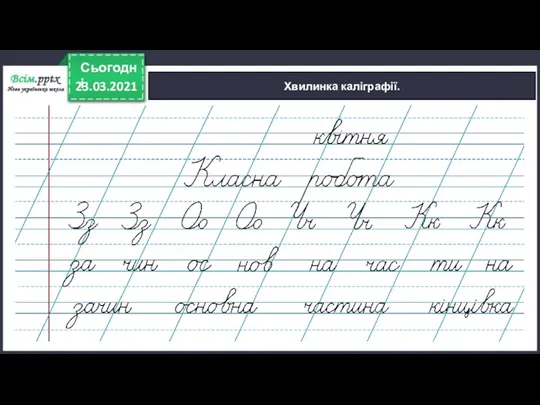 Всім.pptx
Нова українська школа
Сьогодні
23.03.2021
Хвилинка каліграфії.
квітня
Класна робота
Зз Зз Оо Оо Чч Чч Кк Кк
за чин ос нов на час ти на
зачин основна частина кінцівка